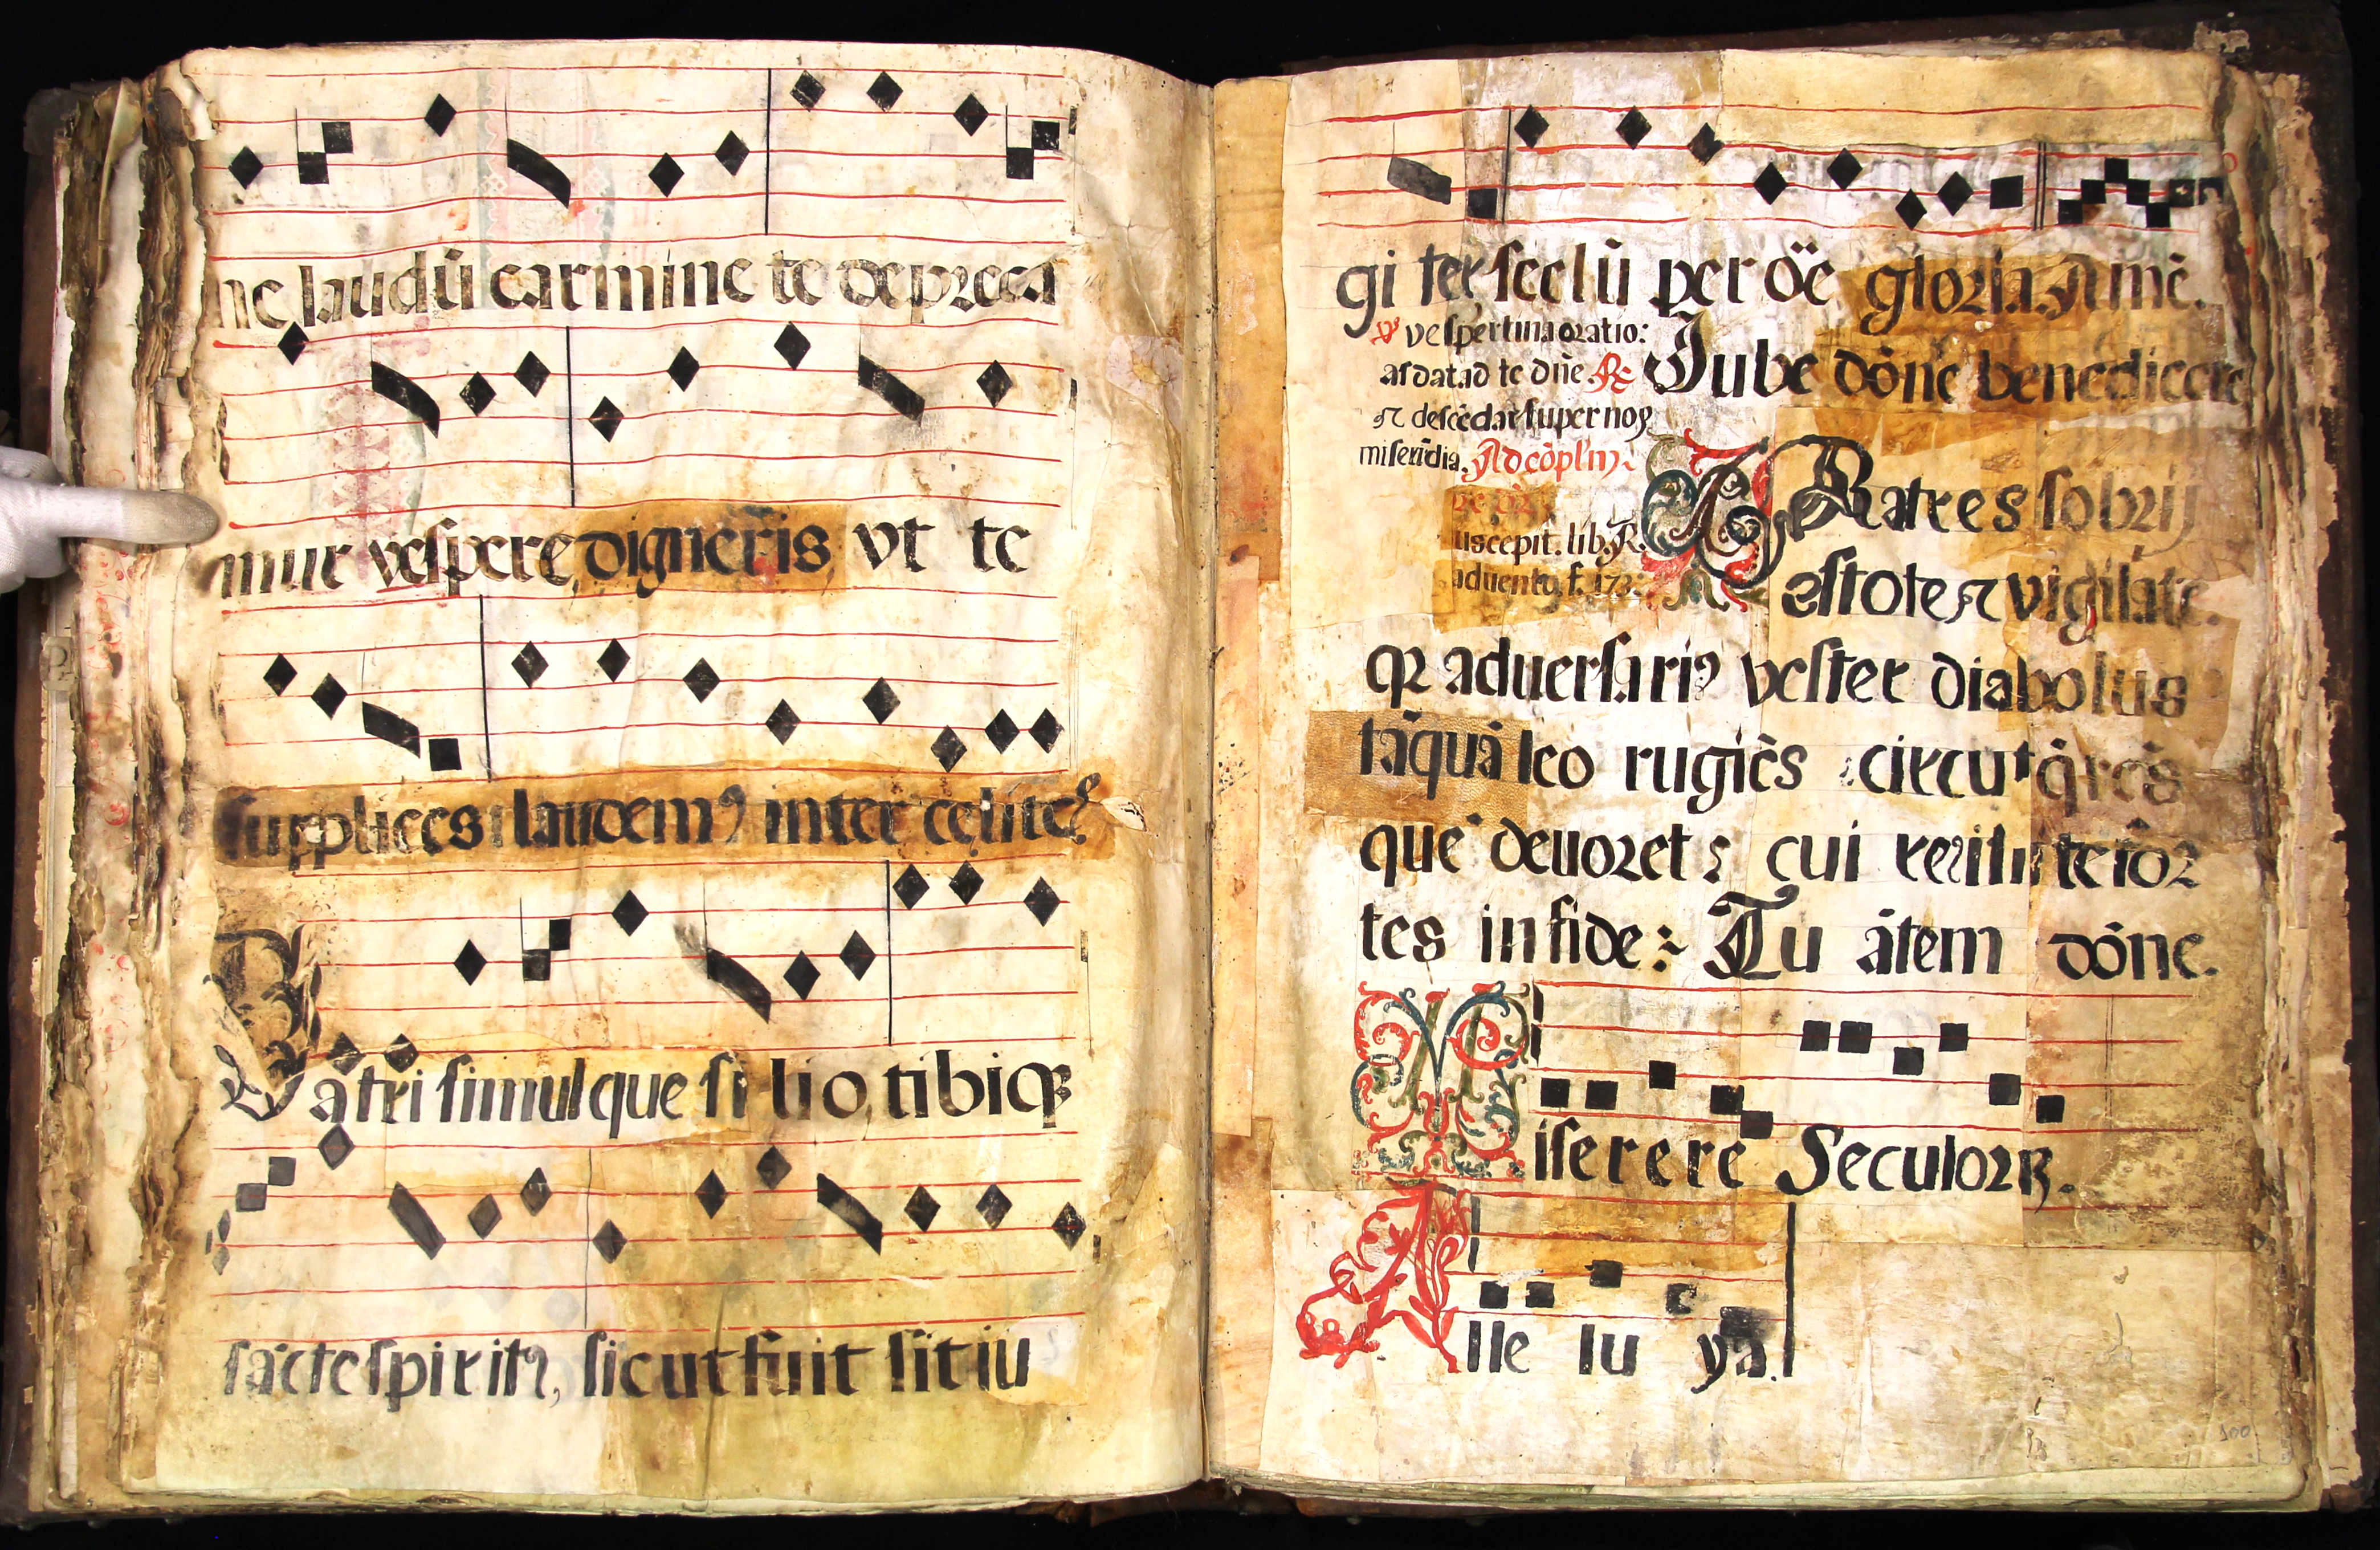 ne laudū carmine te depreca
mur vespere, digneris vt te
supplices laudemꝰ inter cęlites
Patri simulque filio, tibiqꝫ
sācte spiritꝰ, sicut fuit sit iu
gi ter seclū per oē gloria. Amē.
℣ vespertina oratio:
ascēdat ad te dñe. ℟
⁊ descēdat super nos
miserīdia. Ad cōpl'm
Iube dōne benedicere
Fratres sobrij
uscepit. lib. R.
aduento, f. 173:
estote ⁊ vigilate.
qꝛ aduersariꝰ vester diabolus
tāquā leo rugiēs circuit q̄rēs
quē deuoret: cui resistite for
tes in fide: Tu ātem dōne.
Miserere Seculoꝝ.
Alle lu ya.
100